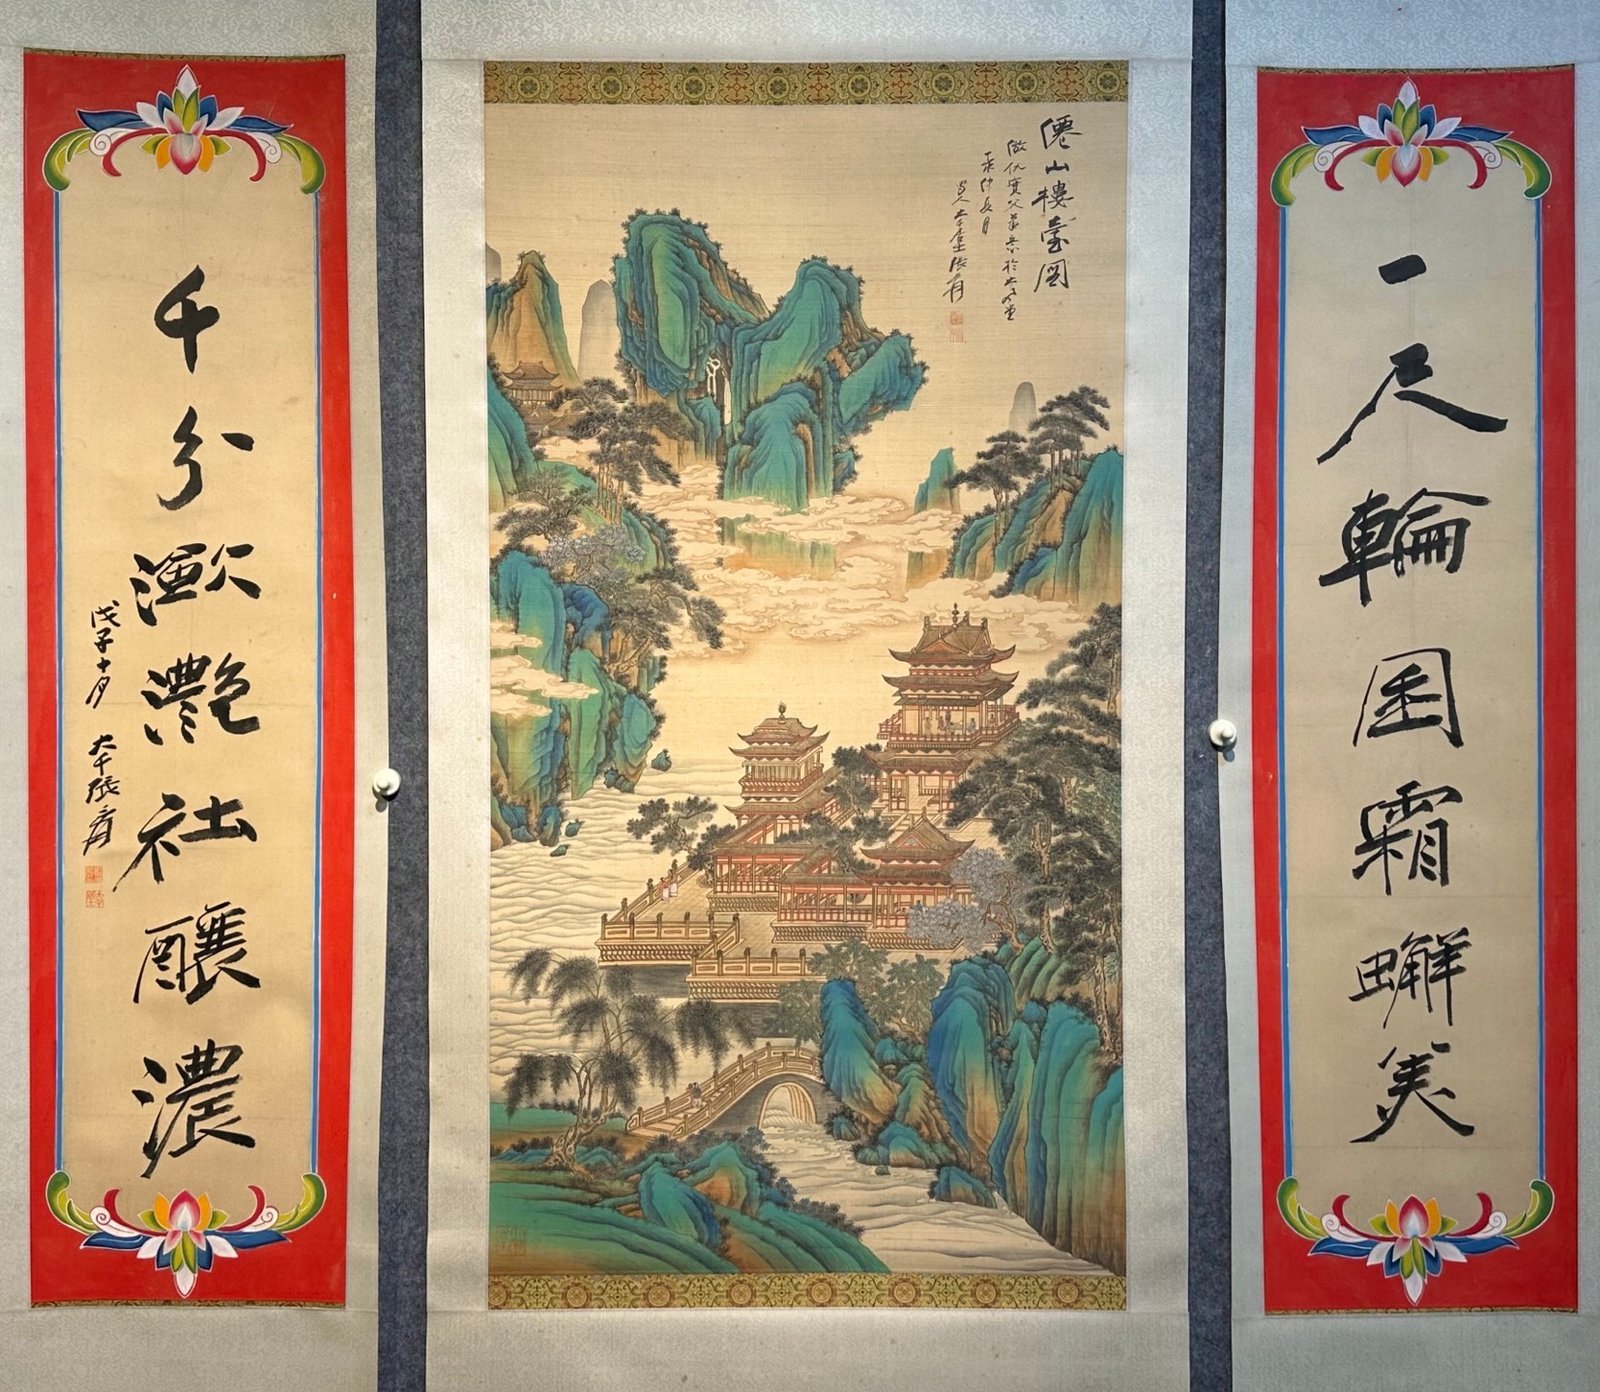 一尺輪囷霜蟹美
僊山樓臺圖
倣仇實父筆意於大風堂
仲月
蜀人大千居士張爰
千分瀲灩社釀濃
戊子十月 大千張爰